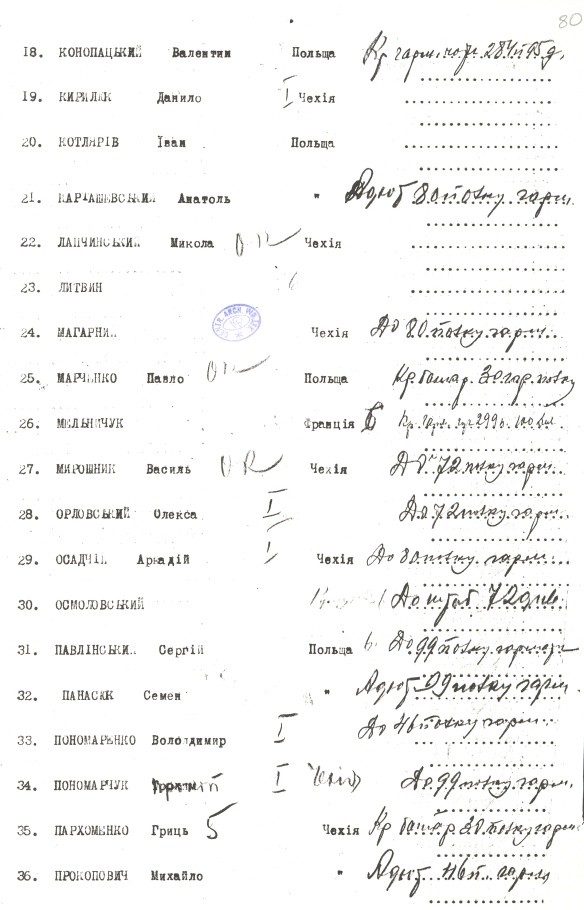 80
18. КОНОПАЦЬКИЙ Валентин Польща Кр гарм.
19. КИРИЛЕК Данило I Чехія
20. КОТЛЯРІВ Іван Польща
21. КАРТАШЕВСЬКИЙ Анатоль " Адют 80 полку гарм.
22. ЛАПЧИНСЬКИЙ Микола Чехія
23. ЛИТВИН
24. МАГАРНИК Чехія До 80 полку гарм.
25. МАРЧЕНКО Павло Польща Кр. батар. 30 гар. полку
26. МЕЛЬНИЧУК Франція Б
27. МИРОШНИК Василь Чехія До 72 полку гарм.
28. ОРЛОВСЬКИЙ Олекса I До 72 полку гарм.
29. ОСАДЧІЙ Аркадій I Чехія До 80 полку гарм.
30. ОСМОЛОВСЬКИЙ До штаб 72 див.
31. ПАВЛІНСЬКИЙ Сергій Польща До 99 полку гарм.
32. ПАНАСЮК Семен " Адют 99 полку гарм.
33. ПОНОМАРЕНКО Володимир I До 46 полку гарм.
34. ПОНОМАРЧУК I Чехія До 99 полку гарм.
35. ПАРХОМЕНКО Гриць 5 Чехія Кр батар 30 полку гарм
36. ПРОКОПОВИЧ Михайло " Адют. 46 п. гарм